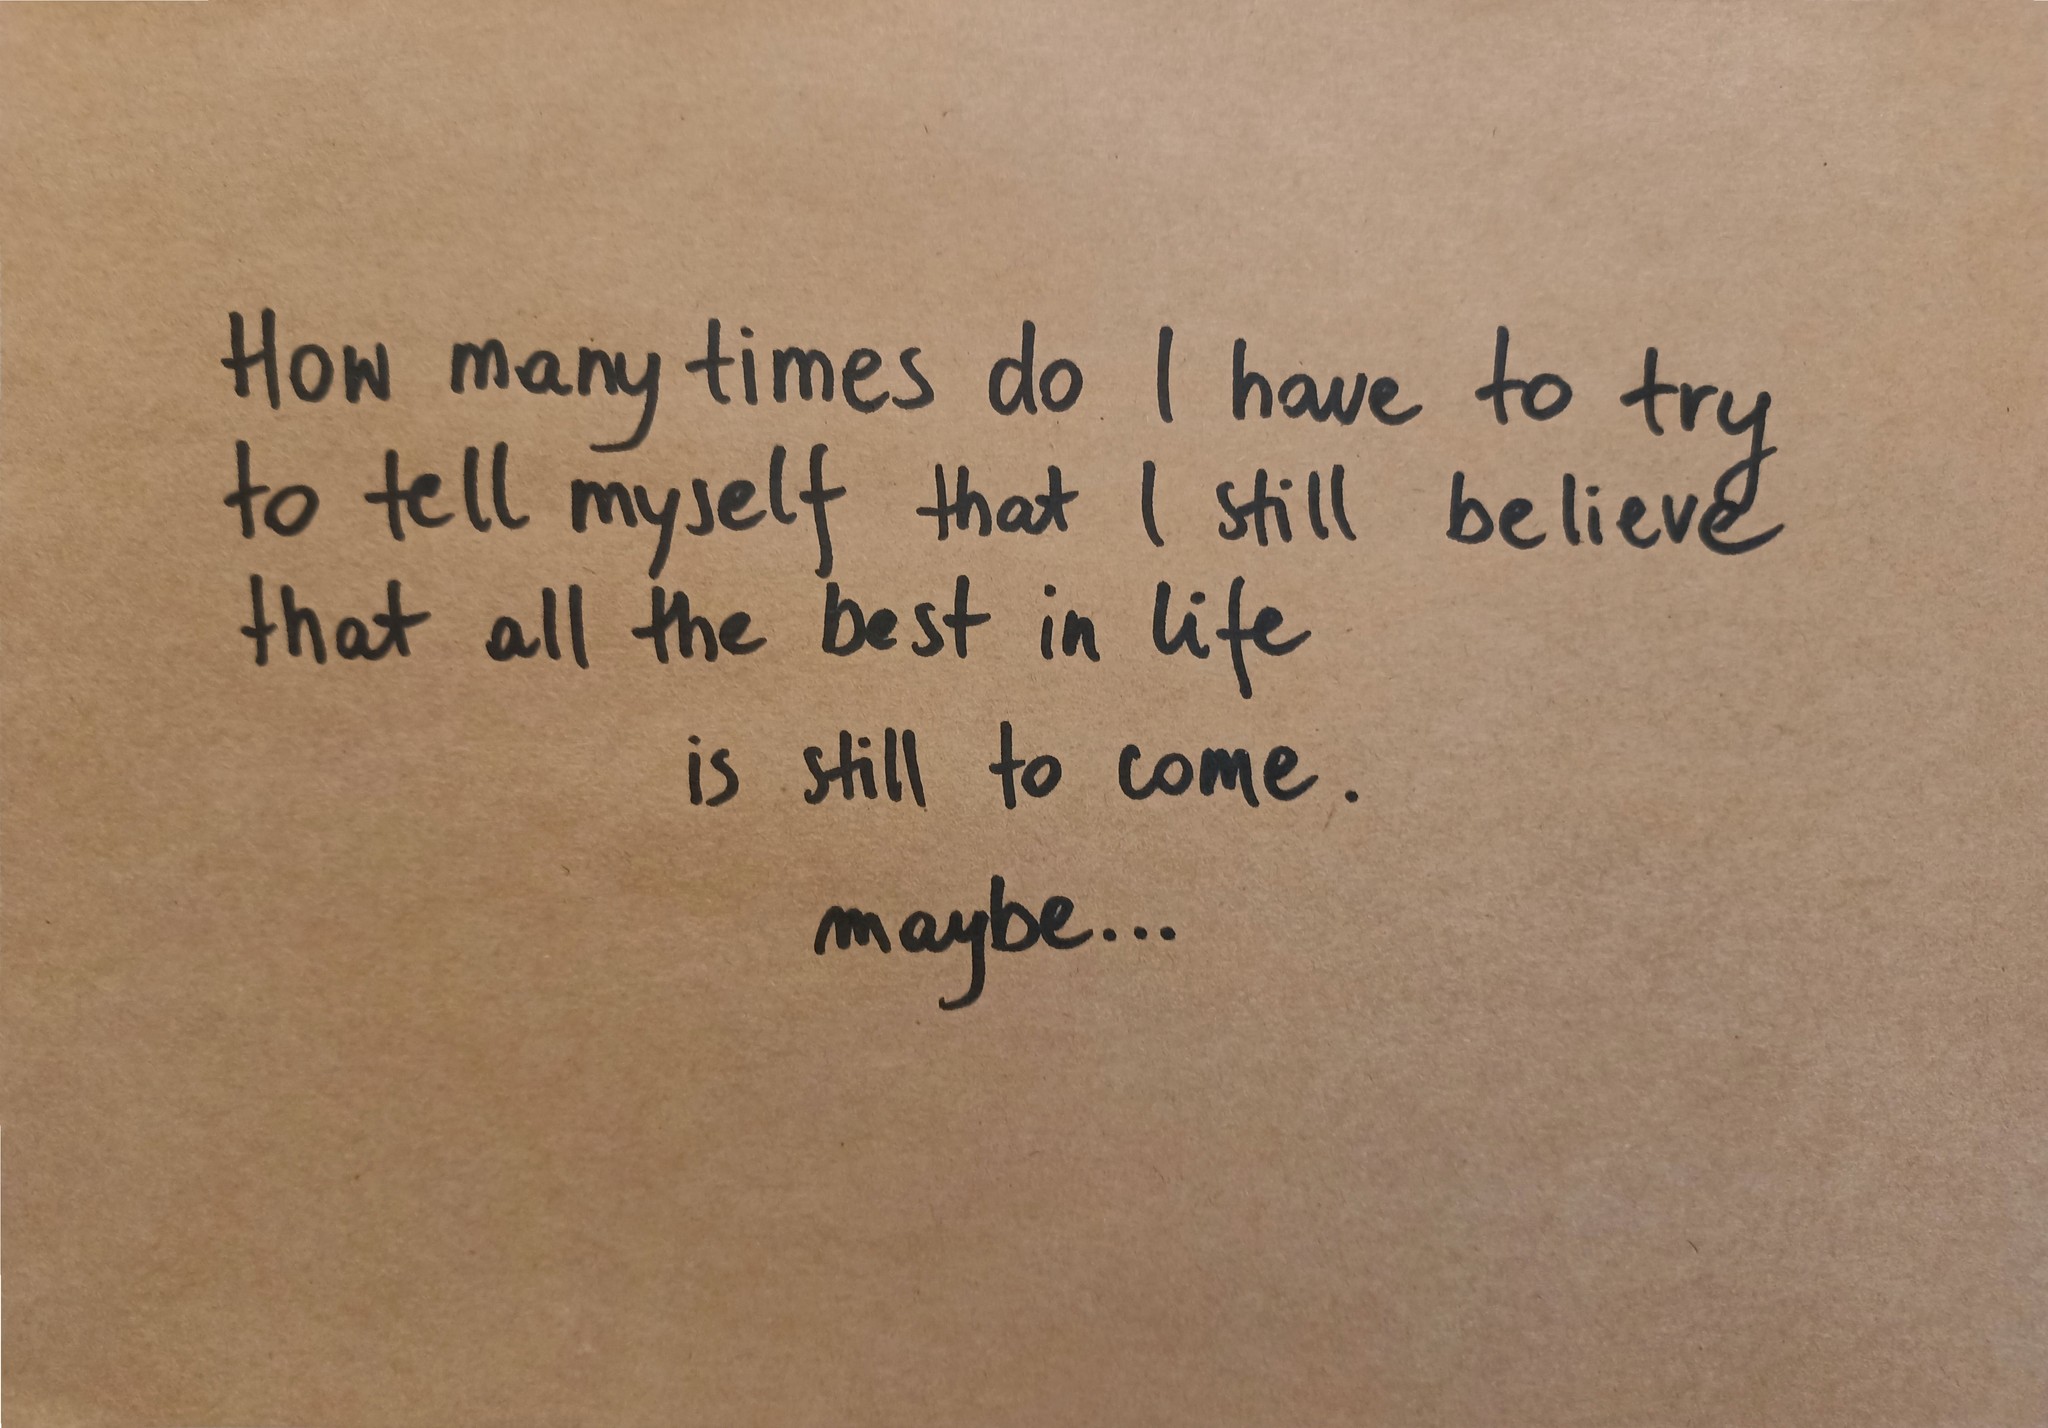 How many times do I have to try
to tell myself that I still believe
that all the best in life
is still to come.
maybe...